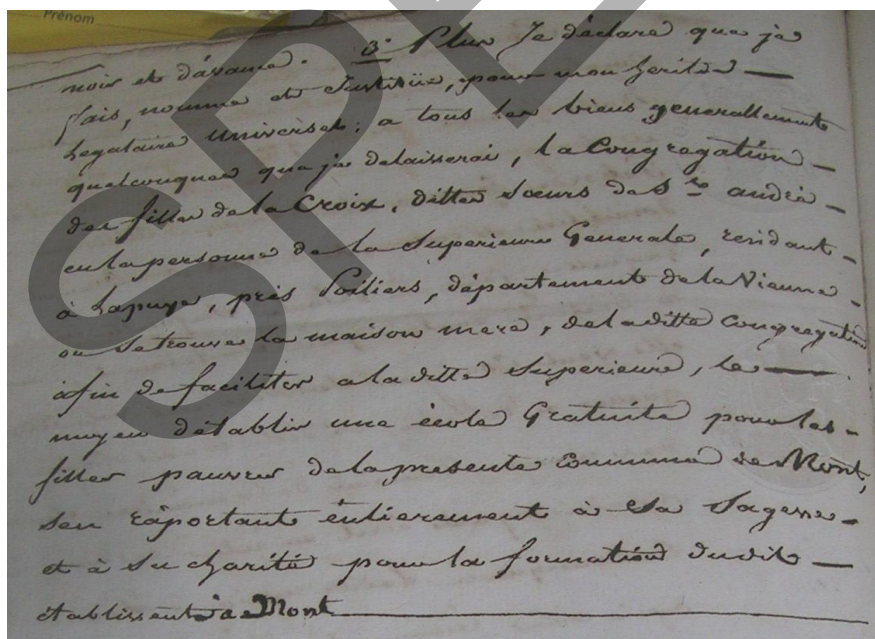 Prénom
noir et davance. 3º Plus Je déclare que je
fais, nomme et Institüe, pour mon heritié
Legataire Universel; a tous les biens generallement
quelconques que je delaisserai, la Congregation
des filles de la Croix, dittes sœurs de St andré
en la personne de la Superieure Generale, residant
à Lapuye, près Poitiers, département de la Vienne
ou se trouve la maison mere, de la ditte Congregation
afin de faciliter a la ditte Superieure, les
moyen détablir une école Gratuite pour les
filles pauvres de la presente Commune de Mont,
sen raportant entierement à Sa Sagesse
et à Sa charité pour la formation dudit
établissent à Mont